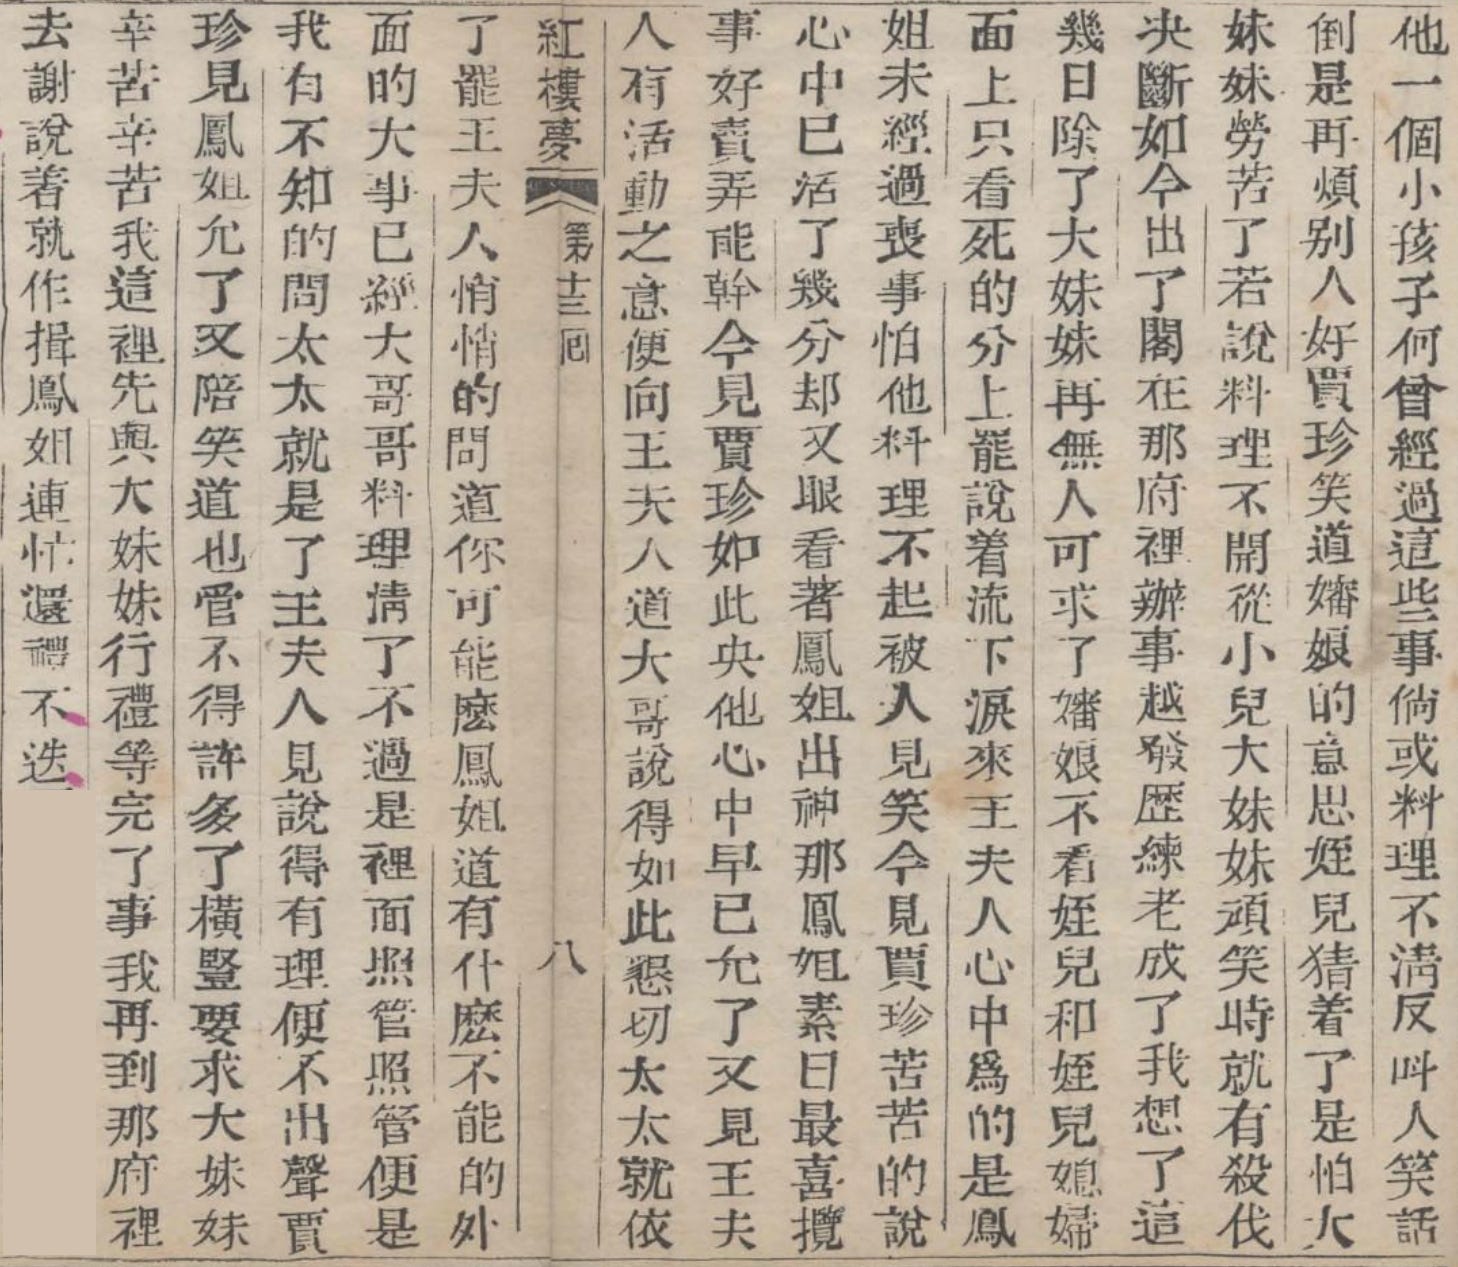 他一個小孩子何曾經過這些事倘或料理不清反叫人笑話
倒是再煩别人好賈珍笑道嬸娘的意思姪兒猜着了是怕大
妹妹勞苦了若說料理不開從小兒大妹妹頑笑時就有殺伐
决斷如今出了閣在那府裡辦事越發歷練老成了我想了這
幾日除了大妹妹再無人可求了嬸娘不看姪兒和姪兒媳婦
面上只看死的分上罷說着流下淚來王夫人心中爲的是鳳
姐未經過喪事怕他料理不起被人見笑今見賈珍苦苦的說
心中已活了幾分却又眼看著鳳姐出神那鳳姐素日最喜攬
事好賣弄能幹今見賈珍如此央他心中早已允了又見王夫
人有活動之意便向王夫人道大哥說得如此懇切太太就依
紅樓夢 第十三囘 八
了罷王夫人悄悄的問道你可能麽鳳姐道有什麽不能的外
面的大事已經大哥哥料理清了不過是裡面照管照管便是
我有不知的問太太就是了王夫人見說得有理便不出聲賈
珍見鳳姐允了又陪笑道也管不得許多了橫豎要求大妹妹
辛苦辛苦我這裡先與大妹妹行禮等完了事我再到那府裡
去謝說着就作揖鳳姐連忙還禮不迭